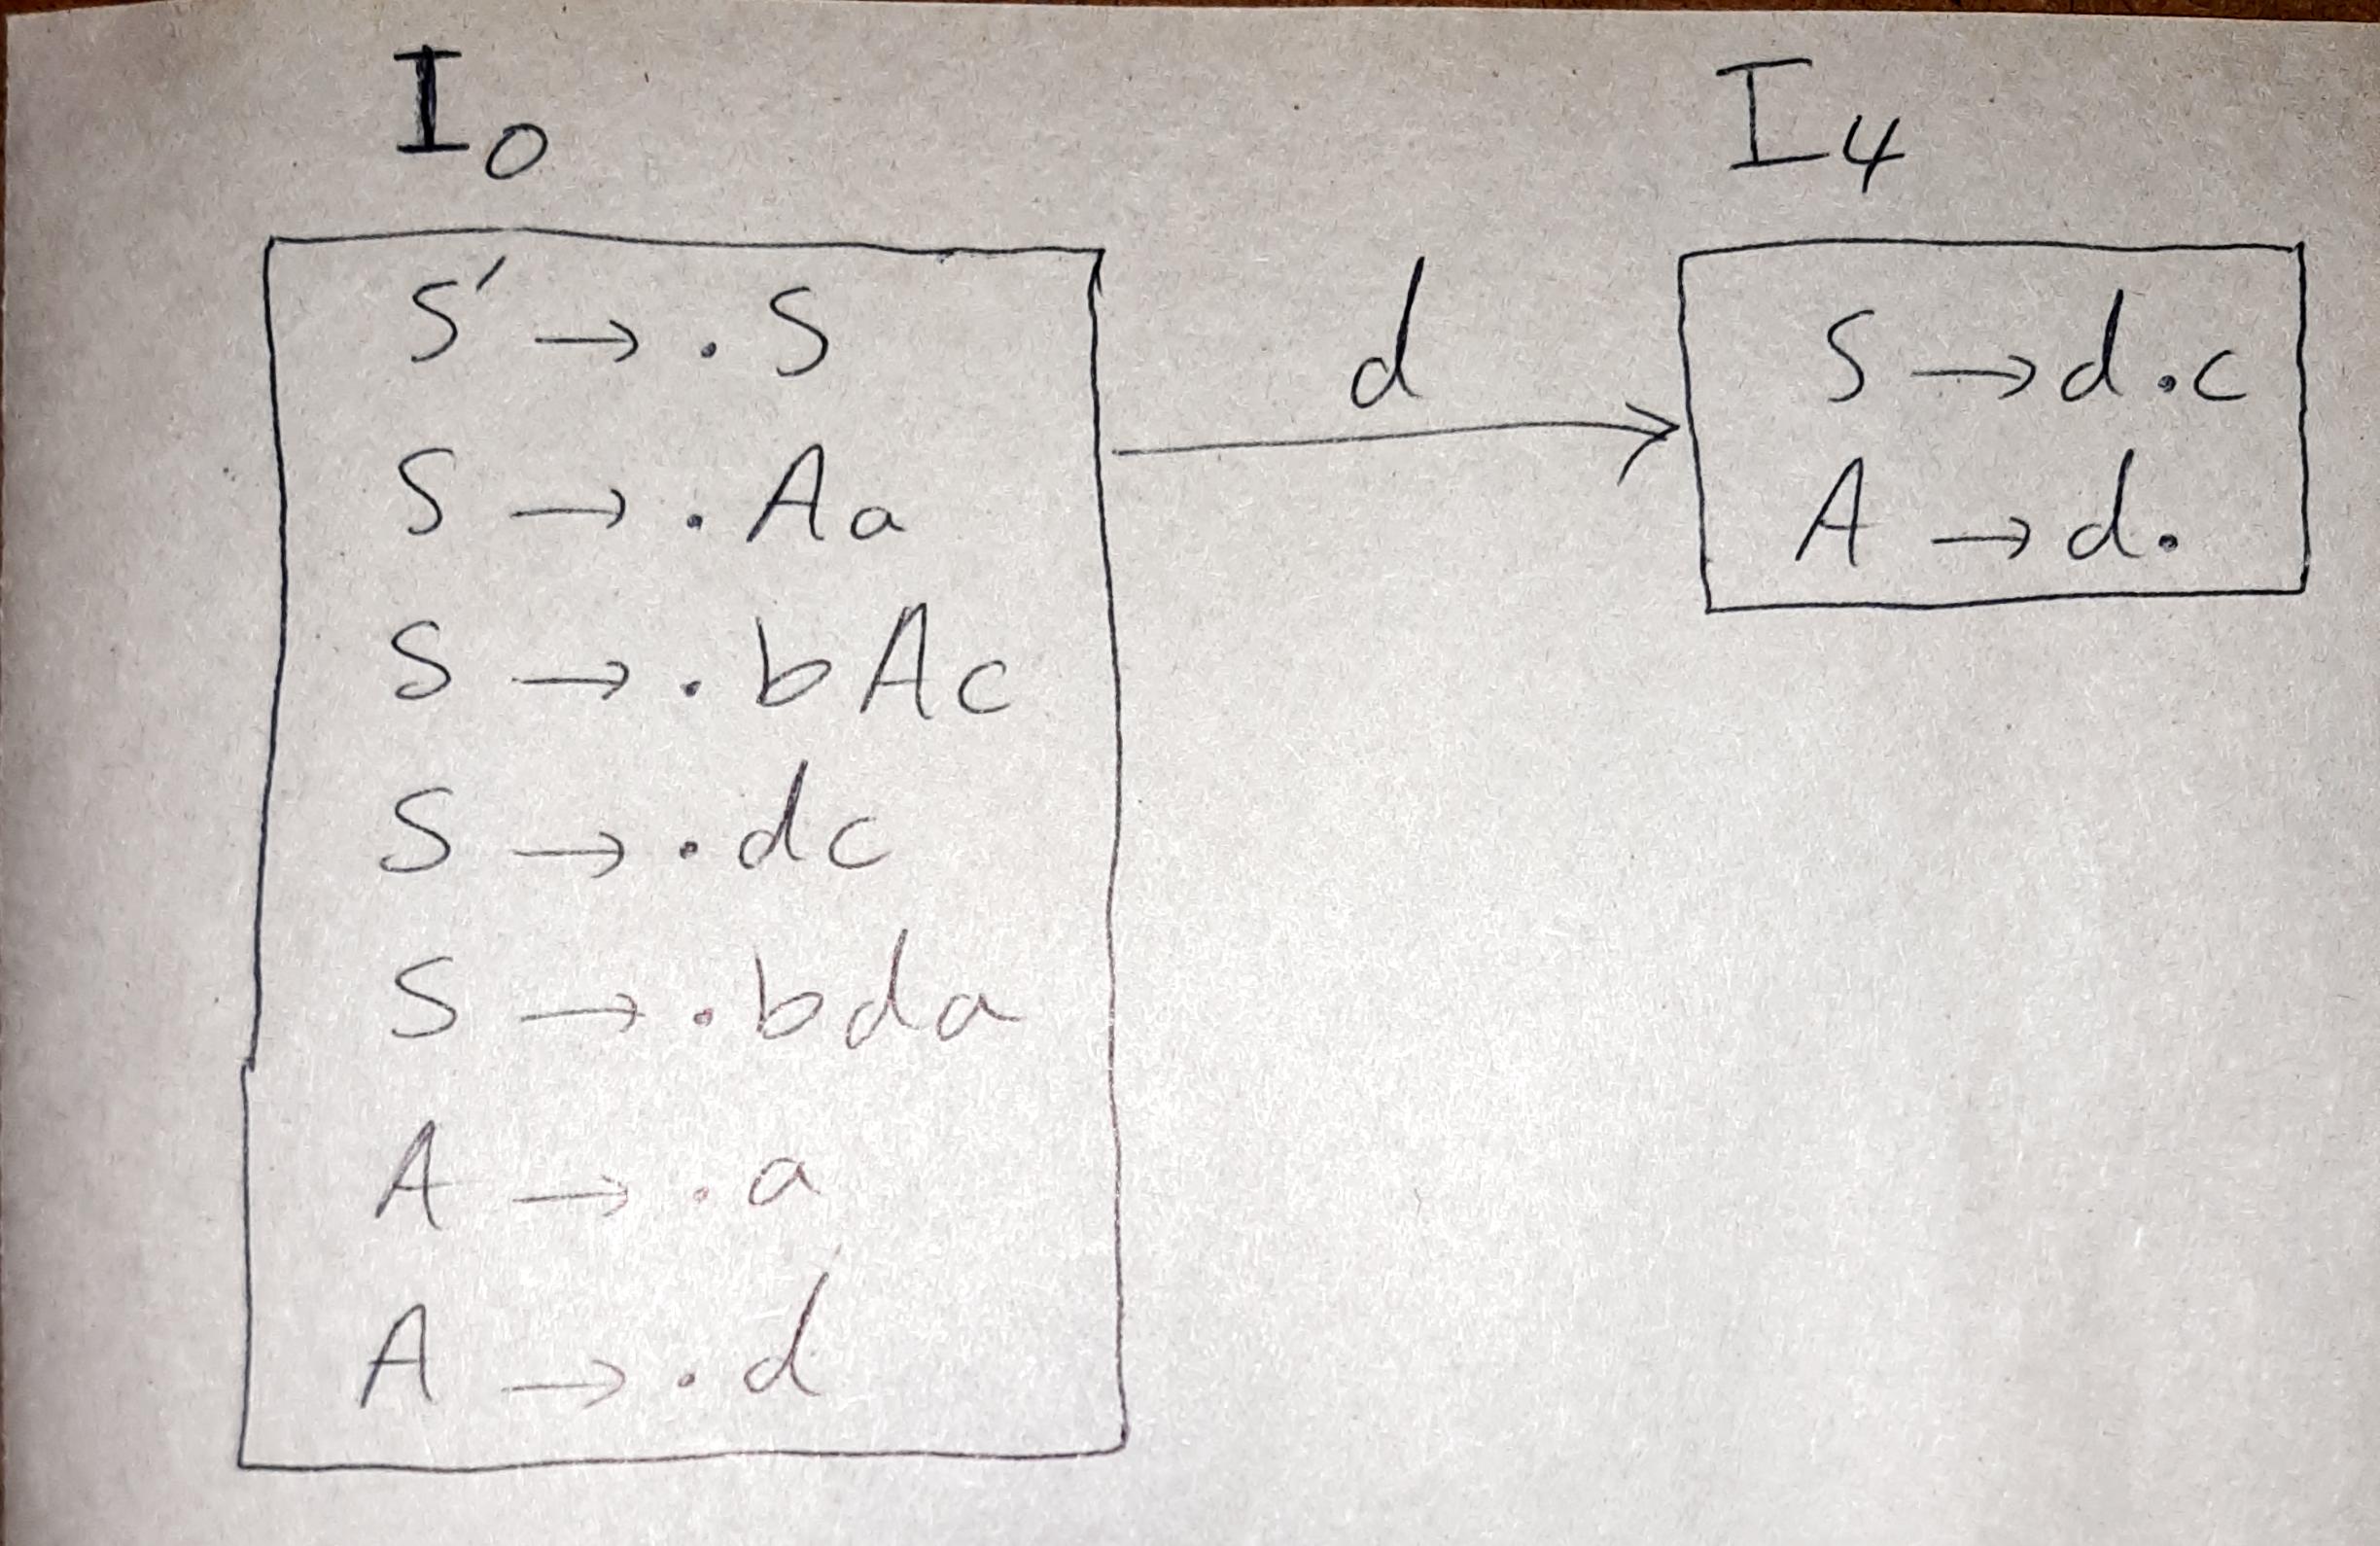 I₀
S′ → . S
S → . Aa
S → . bAc
S → . dc
S → . bda
A → . a
A → . d
d
I₄
S → d . c
A → d .